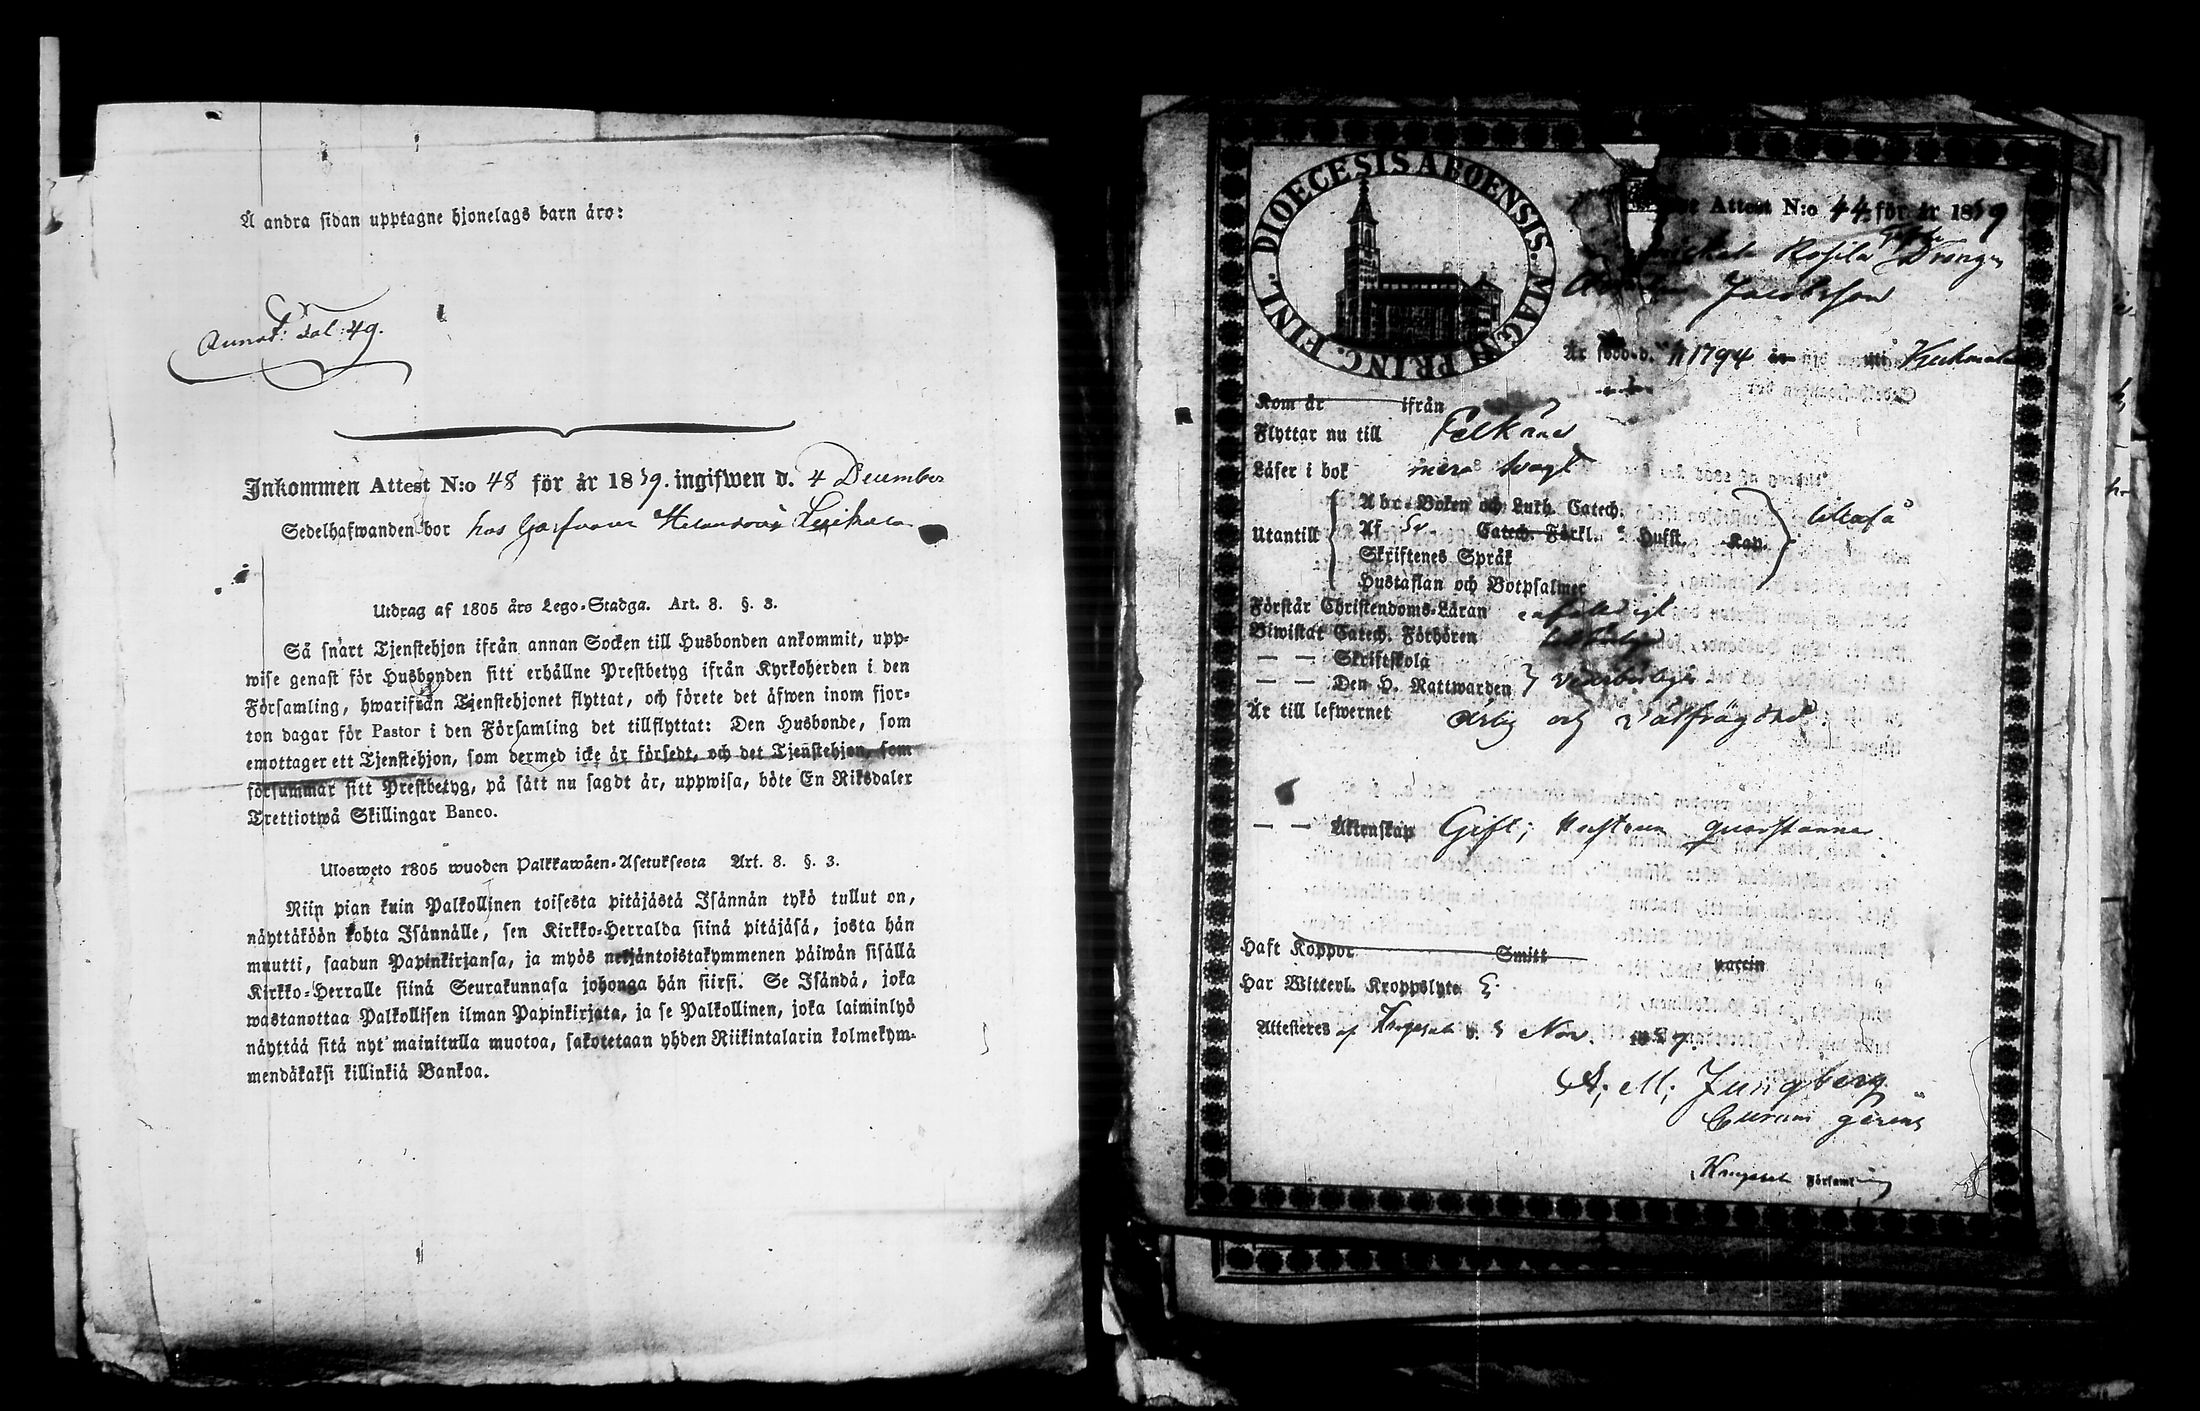 Å andra sidan upptagne hjonelags barn äro:
Annot: Fol: 49.
Inkommen Attest N:o 48 för år 1839. ingifwen d. 4 December
Sedelhafwanden bor hos Garfvaren
Utdrag af 1805 års Lego-Stadga. Art. 8. §. 3.
Så snart Tjenstehjon ifrån annan Socken till Husbonden ankommit, upp-
wise genast för Husbonden sitt erhållne Prestbetyg ifrån Kyrkoherden i den
Församling, hwarifrån Tjenstehjonet flyttat, och förete det äfwen inom fjor-
ton dagar för Pastor i den Församling det tillflyttat: Den Husbonde, som
emottager ett Tjenstehjon, som dermed icke är försedt, och det Tjenstehjon, som
försummar sitt Prestbetyg, på sätt nu sagdt är, uppwisa, böte En Riksdaler
Trettiotwå Skillingar Banco.
Ulosweto 1805 wuoden Palkkawäen-Asetuksesta Art. 8. §. 3.
Niin pian kuin Palkollinen toisesta pitäjästä Isännän tykö tullut on,
näyttäköön kohta Isännälle, sen Kirkko-Herralda siinä pitäjäsä, josta hän
muutti, saadun Papinkirjansa, ja myös neljäntoistakymmenen päiwän sisällä
Kirkko-Herralle siinä Seurakunnasa johonga hän siirsi. Se Isändä, joka
wastanottaa Palkollisen ilman Papinkirjata, ja se Palkollinen, joka laiminlyö
näyttää sitä nyt mainitulla muotoa, sakotetaan yhden Riikintalarin kolmekym-
mendäkaksi killinkiä Bankoa.
DIOECESIS ABOENSIS. MAGNI PRINC. FINL.
Attest N:o 44 för år 1839
Drängen
Jacobsson
Är född d. 1794 uti Kuhmalax
Kom år ifrån
Flyttar nu till Pelkäne
Läser i bok
Abc-Boken och Luth. Catech.
Utantill Af Catech. Förkl. Hufst. Kap.
Skriftenes Språk
Hustaflan och Botpsalmer
Förstår Christendoms-Läran enfaldigt
Biwistat Catech. Förhören
— — Skriftskola
— — Den H. Nattwarden vederbörligt
Är till lefwernet ärlig och välfrägdad
— — Äktenskap Gift; hustrun
Haft Koppor Smitt vaccin
Har Witterl. Kroppslyte
Attesteras af Kangasala d. Nov. 1839.
A. M. Ljungberg
Curam gerens
Kangasala Församling